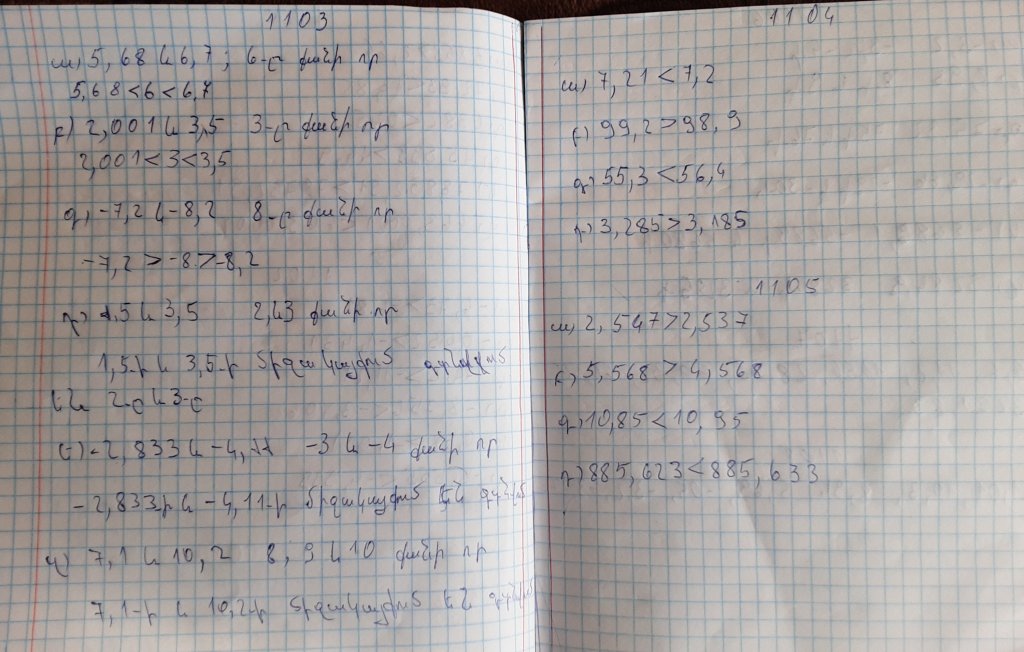 1103
ա) 5,68 և 6,7; 6-ը քանի որ
5,68<6<6,7
բ) 2,001 և 3,5 3-ը քանի որ
2,001<3<3,5
գ) -7,2 և -8,2 8-ը քանի որ
-7,2>-8>-8,2
դ) 1,5 և 3,5 2,և3 քանի որ
1,5-ի և 3,5-ի միջակայքում գտնվում
են 2-ը և 3-ը
ե) -2,833 և -4,11 -3 և -4 քանի որ
-2,833-ի և -4,11-ի միջակայքում են գտնվում
զ) 7,1 և 10,2 8, 9 և 10 քանի որ
7,1-ի և 10,2-ի միջակայքում են գտնվում
1104
ա) 7,21<7,2
բ) 99,2>98,9
գ) 55,3<56,4
դ) 3,285>3,185
1105
ա) 2,547>2,537
բ) 5,568>4,568
գ) 10,85<10,95
դ) 885,623<885,633